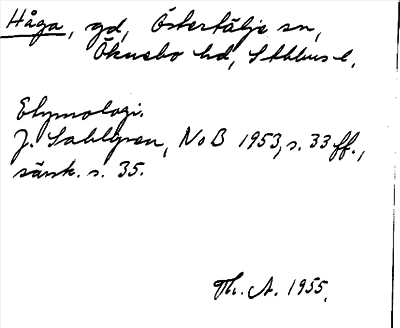 Håga, gd, Östertälje sn,
Öknebo hd, Sthlms l.
Etymologi.
J. Sahlgren, NoB 1953, s. 33 ff.,
särsk. s. 35.
Th. A. 1955.